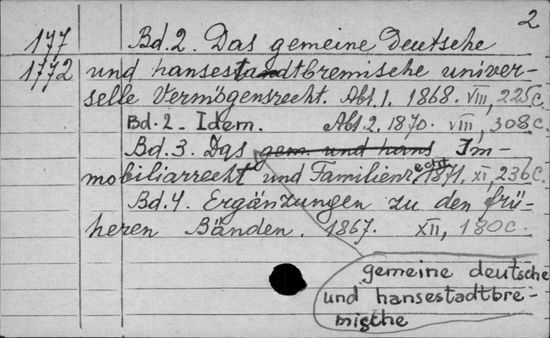 2
177 Bd. 2. Das gemeine Deutsche
1772 und hansestadtbremische univer-
selle Vermögensrecht. Abt. 1. 1868. VIII, 225 C.
Bd. 2 - Idem. Abt. 2. 1870. VIII, 308 C.
Bd. 3. Das gem. und hans Im-
mobiliarrecht und Familienrecht. 1871. XI, 236 C.
Bd. 4. Ergänzungen zu den frü-
heren Bänden. 1867. XII, 180 C.
gemeine deutsche
und hansestadtbre-
mische